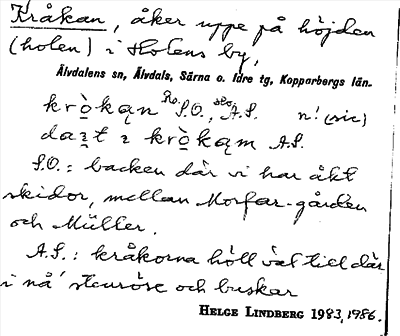 Kråkan, åker uppe på höjden
(holen) i Holens by,
Älvdalens sn, Älvdals, Särna o. Idre tg, Kopparbergs län.
krò̱kąn S.O., A.S. n! (sic)
krò̱kąm A.S.
S.O.: backen där vi har åkt
skidor, mellan Morfar-gården
och Müller.
A.S.: kråkorna höll väl till där
i nå' stenröse och buskar
HELGE LINDBERG 1983, 1986.